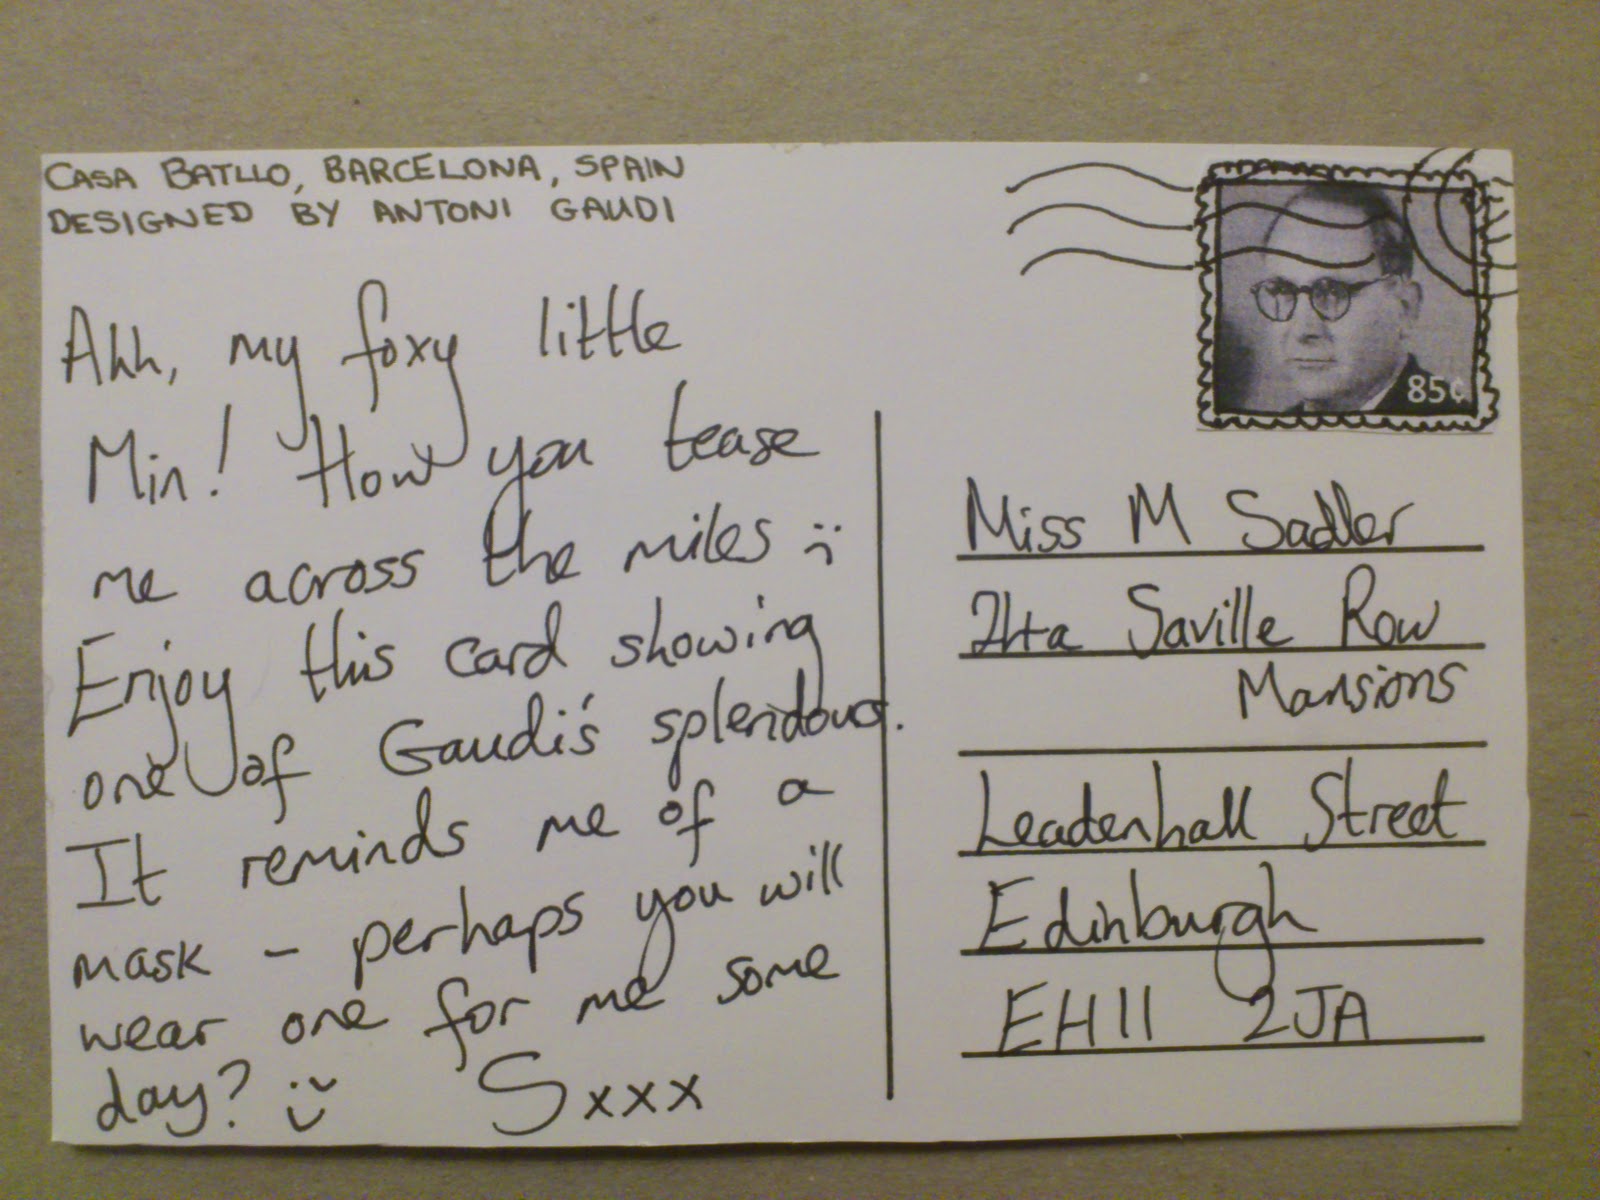 CASA BATLLO, BARCELONA, SPAIN
DESIGNED BY ANTONI GAUDI
Ahh, my foxy little
Min! How you tease
me across the miles :(
Enjoy this card showing
one of Gaudi's splendours.
It reminds me of a
mask - perhaps you will
wear one for me some
day? ;)
Sxxx
85¢
Miss M Sadler
24a Saville Row
Mansions
Leadenhall Street
Edinburgh
EH11 2JA